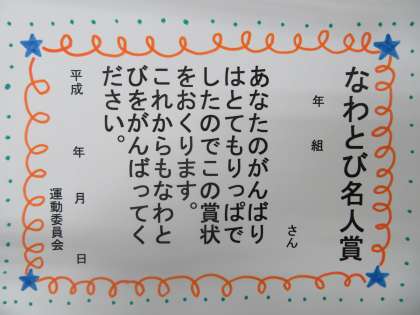 なわとび名人賞
年 組
さん
あなたのがんばり
はとてもりっぱで
したのでこの賞状
をおくります。
これからもなわと
びをがんばってく
ださい。
平成 年 月 日
運動委員会